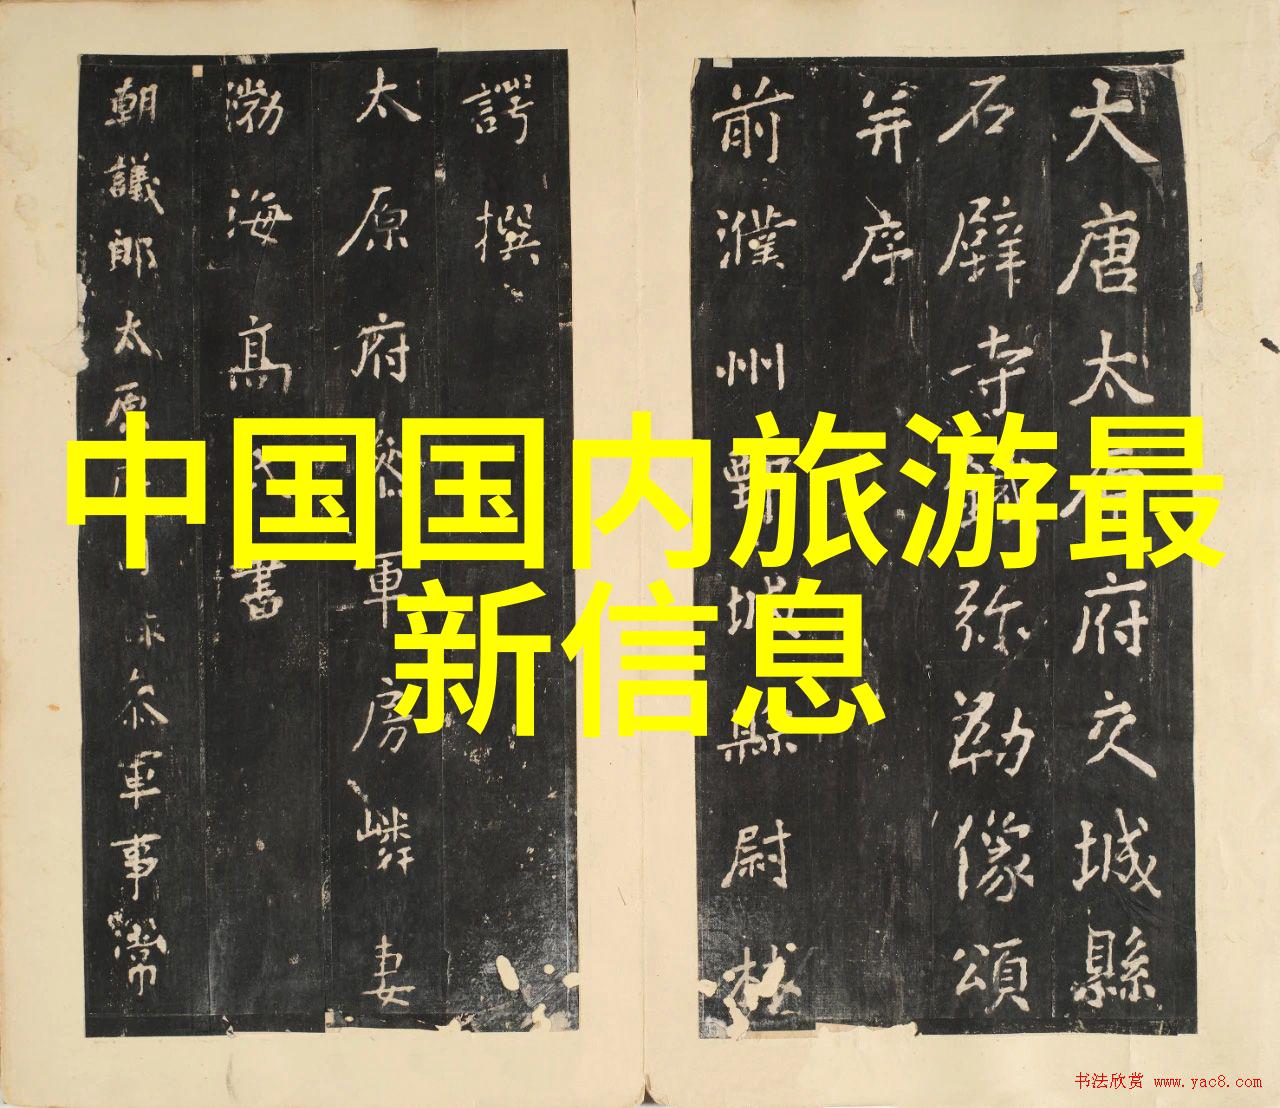 中国国内旅游最
新信息
大唐太原府交城縣
石壁寺鐵弥勒像頌
并序
前濮州鄄城縣尉林
諤撰
太原府叅軍房嶙妻
渤海高氏書
朝議郎太原叅軍事常
书法欣赏 www.yac8.com